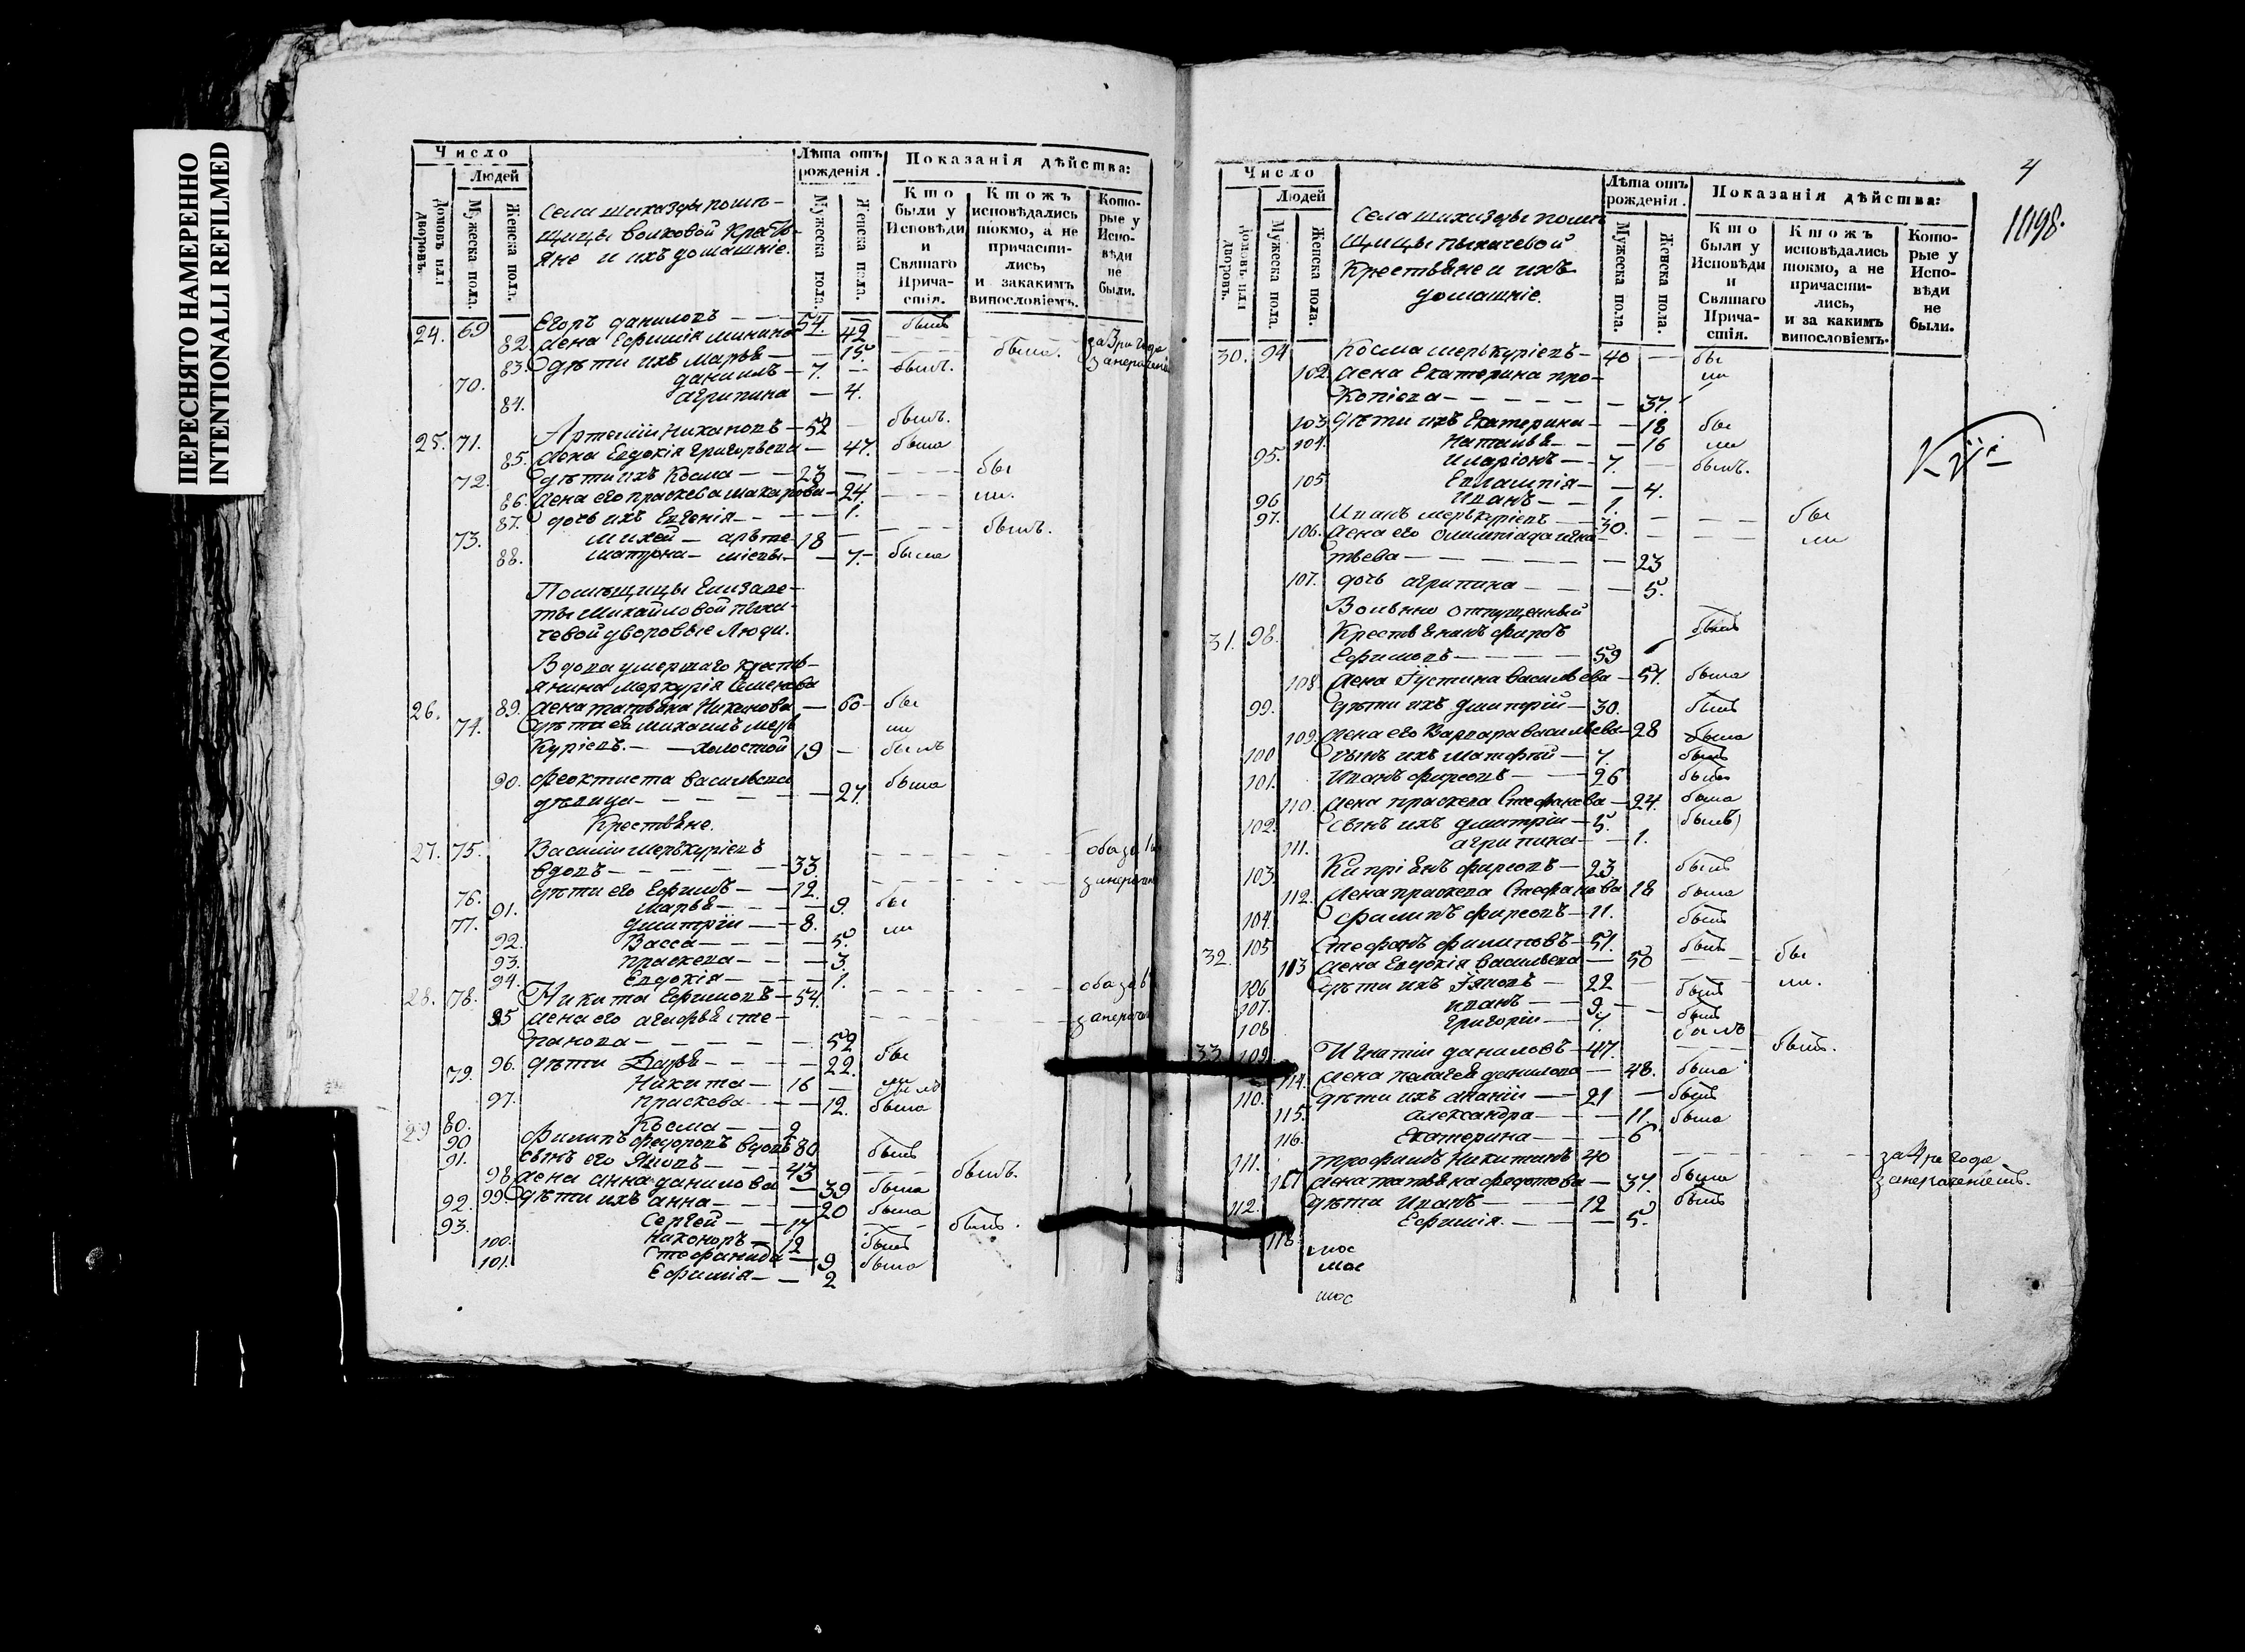 ПЕРЕСНЯТО НАМЕРЕННО
INTENTIONALLI REFILMED
Число
Людей
Домовъ или дворовъ.
Мужеска пола.
Женска пола.
Села
помѣ-
щицы волковой крестья-
яне и ихъ домашніе.
Лѣта отъ рожденія.
Мужеска пола.
Женска пола.
Показанія дѣйства:
Кто были у Исповѣди и Святаго Прича-стія.
Ктожъ исповѣдались токмо, а не причасти-лись, и закакимъ винословіемъ.
Кото-рые у Испо-вѣди не были.
24. 69 Егоръ даниловъ — 54. былъ
82. жена Ефимія минина 42 за 3 ри года
83. дѣти ихъ марья — 15. была. занераченіе
70. даниилъ — 7. — былъ.
84. агрипина — 4.
25. 71. Артемій Никаповъ — 52 былъ.
85. жена Евдокія григорьева — 47. была
72. дѣти ихъ Косма — 23 — бы
86. жена его праскева макарова — 24. ли.
87. дочь ихъ Евгенія — 1.
73. михей — арте- 18 — былъ.
88. матрона — міевы — 7. — была
Помѣщицы Елизаве-
ты Михайловой пыхи-
чевой дворовые люди.
Вдова умершаго крестья-
янина Меркурія Семенова
26. 89. жена татьяна Никонова — 60 — бы
74. дѣти ея михаилъ мерь ли
куріевъ. — холостой 19 — былъ
90. феоктиста васильева была
дѣвица — 27.
Крестьяне.
27. 75. Василіи мерькуріевъ оба за
вдовъ — 33.
76. дѣти его Ефимъ — 12.
91. марья — 9. бы
77. димитріи — 8. ли
92. Васса — 5.
93. праскева — 3.
94. Евдокія — 1.
28. 78. Никита Ефимовъ — 54. оба за
95 жена его агафья сте-
панова — 52
96. дѣти Дарья — 22. бы
79. Никита — 16 — былъ
97. праскева — 12. была
80. Косма — 9
29 90 филипъ федоровъ вдовъ 80 былъ
91. сынъ его Яковъ — 43 былъ.
98 жена анна данилова — 39 была
99. дѣти ихъ анна — 20 была
92. Сергей — 17 былъ.
93. Никоноръ — 12 былъ
100. Стефанида — 9 была
101. Ефимія — 2
4
1198.
Число
Людей
Домовъ или дворовъ.
Мужеска пола.
Женска пола.
Села
помѣ-
щицы пыхичевой
Крестьяне и ихъ
домашніе.
Лѣта отъ рожденія.
Мужеска пола.
Женска пола.
Показанія дѣйства:
Кто были у Исповѣди и Святаго Прича-стія.
Ктожъ исповѣдались токмо, а не причасти-лись, и за какимъ винословіемъ.
Кото-рые у Испо-вѣди не были.
30. 94 Косма мерькуріевъ — 40 — бы
102. жена Екатерина про- ли
копіева — 37.
103. дѣти ихъ Екатерина — 18 бы
104. Наталья — 16 ли
95. иларіонъ — 7. — былъ.
105 Евлампія — 4.
96 Иванъ — 1.
97. Иванъ мерькуріевъ — 30. — бы
106. жена его олимпіада игна- ли
тьева — 23
107. дочь агрипина — 5.
Вольнно отпущенный
31. 98. Крестьянинъ фирсъ былъ
Ефимовъ — 59
108. жена Іустина васильева — 57. была
99. дѣти ихъ дмитрій — 30. былъ
109. жена его Варвара васильева — 28 была
100 сынъ ихъ матфей — 7. былъ
101. Иванъ фирсовъ — 26 былъ
110. жена праскева Стефанова — 24. была
102. сынъ ихъ дмитріи — 5. былъ
111. агрипина — 1.
103. Кипріянъ фирсовъ — 23 былъ
112. жена праскева Стефанова 18 была
104. филипъ фирсовъ — 11. былъ
32. 105 Стефанъ филиповъ — 51. былъ
113 жена Евдокія васильева — 50 бы
106 дѣти ихъ Іяковъ — 22 былъ ли.
107. иванъ — 9 былъ
108 Григоріи — 7. былъ
33 109. Игнатіи даниловъ — 47. былъ.
114. жена пелагея данилова — 48. была
110. дѣти ихъ ананіи — 21 былъ
115. александра — 11. была
116. Екатерина — 6
111. трофимъ Никитинъ 40 за 4 ре года
117 жена татьяна федотова — 37. была занераченіемъ.
112. дѣти Иванъ — 12 былъ
118 Ефимія. — 5.